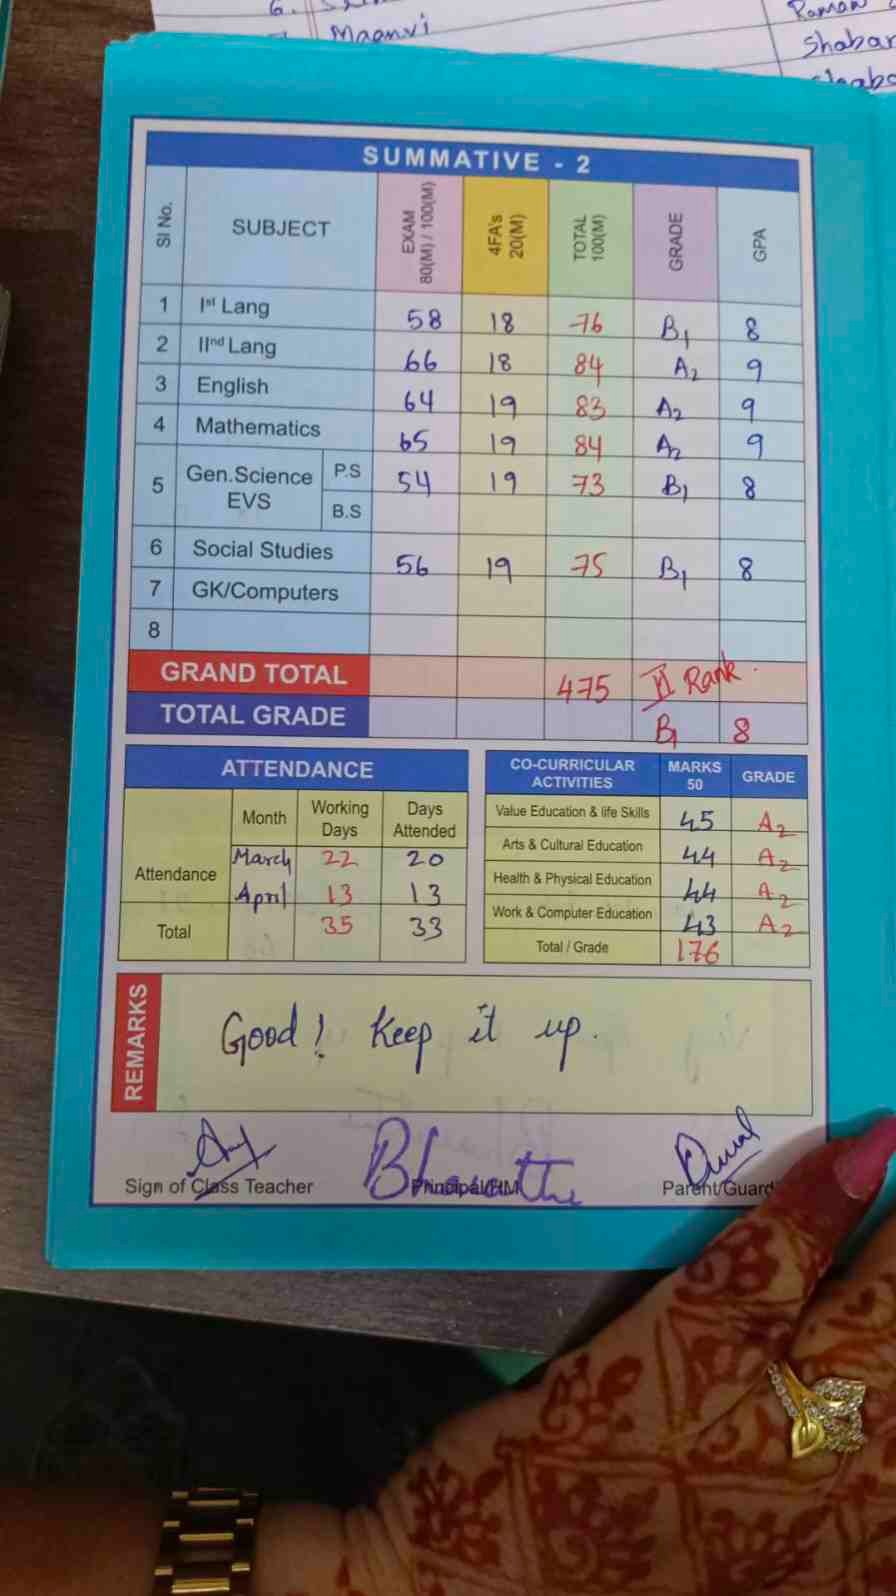 6.
Maanvi
Raman
Shabar
SUMMATIVE - 2
Sl No. SUBJECT EXAM 80(M) / 100(M) 4FA's 20(M) TOTAL 100(M) GRADE GPA
1 Ist Lang 58 18 76 B1 8
2 IInd Lang 66 18 84 A2 9
3 English 64 19 83 A2 9
4 Mathematics 65 19 84 A2 9
5 Gen.Science EVS P.S 54 19 73 B1 8
B.S
6 Social Studies 56 19 75 B1 8
7 GK/Computers
8
GRAND TOTAL 475 II Rank.
TOTAL GRADE B1 8
ATTENDANCE
Month Working Days Days Attended
Attendance March 22 20
April 13 13
Total 35 33
CO-CURRICULAR ACTIVITIES MARKS 50 GRADE
Value Education & life Skills 45 A2
Arts & Cultural Education 44 A2
Health & Physical Education 44 A2
Work & Computer Education 43 A2
Total / Grade 176
REMARKS
Good! Keep it up.
Sign of Class Teacher Principal/HM Parent/Guard